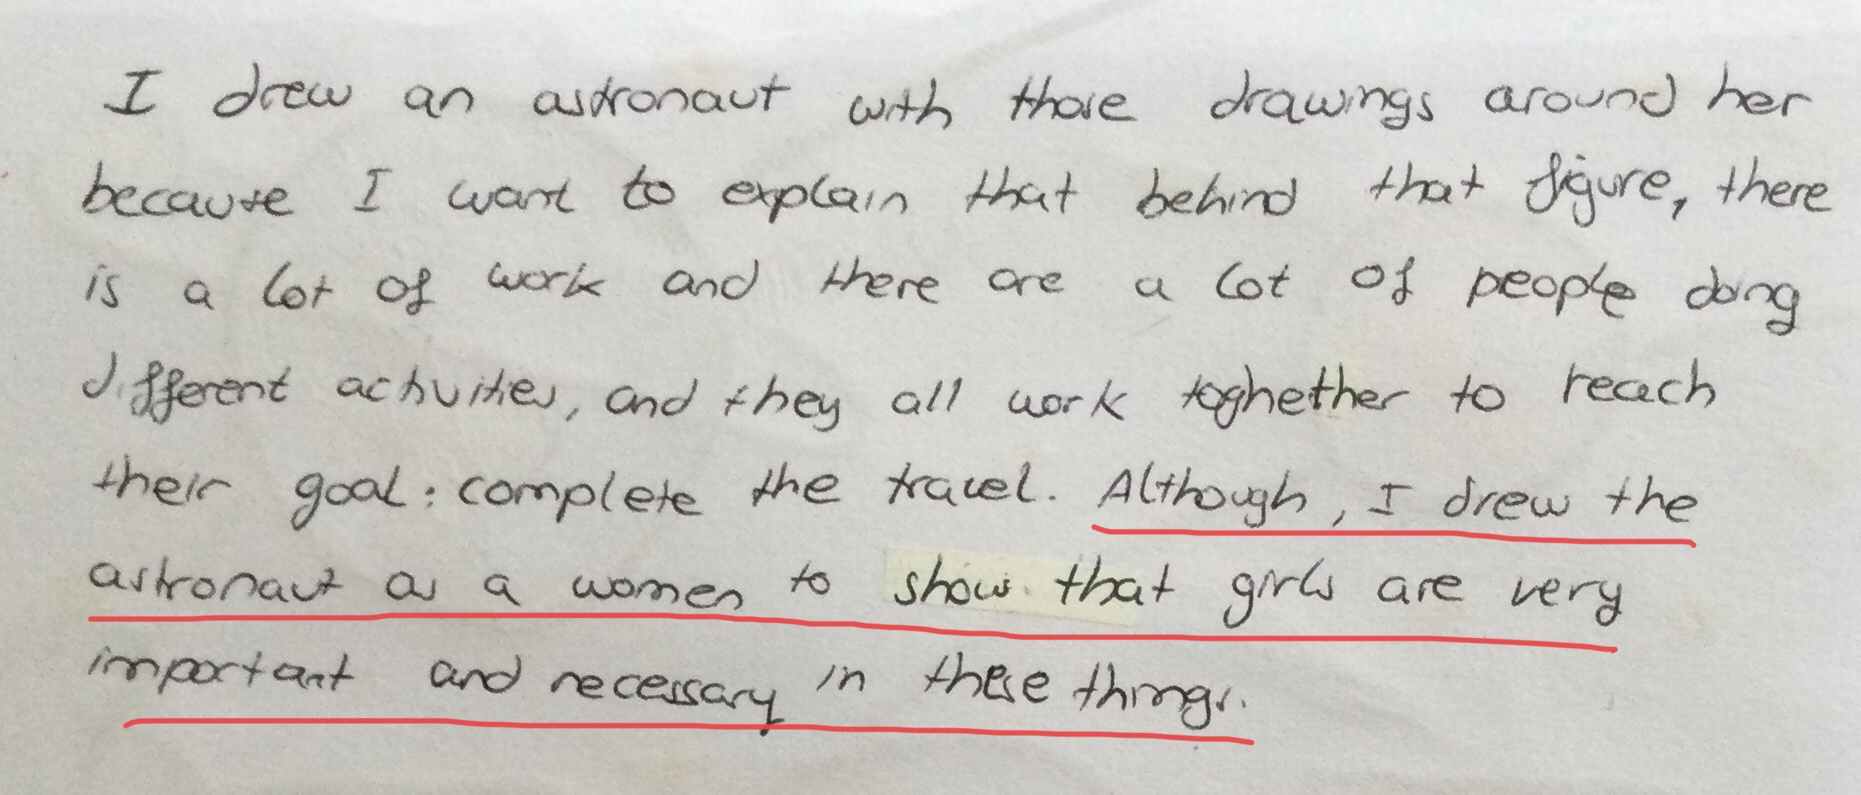 I drew an astronaut with those drawings around her
because I want to explain that behind that figure, there
is a lot of work and there are a lot of people doing
different activities, and they all work toghether to reach
their goal: complete the travel. Although, I drew the
astronaut as a women to show that girls are very
important and necessary in these things.